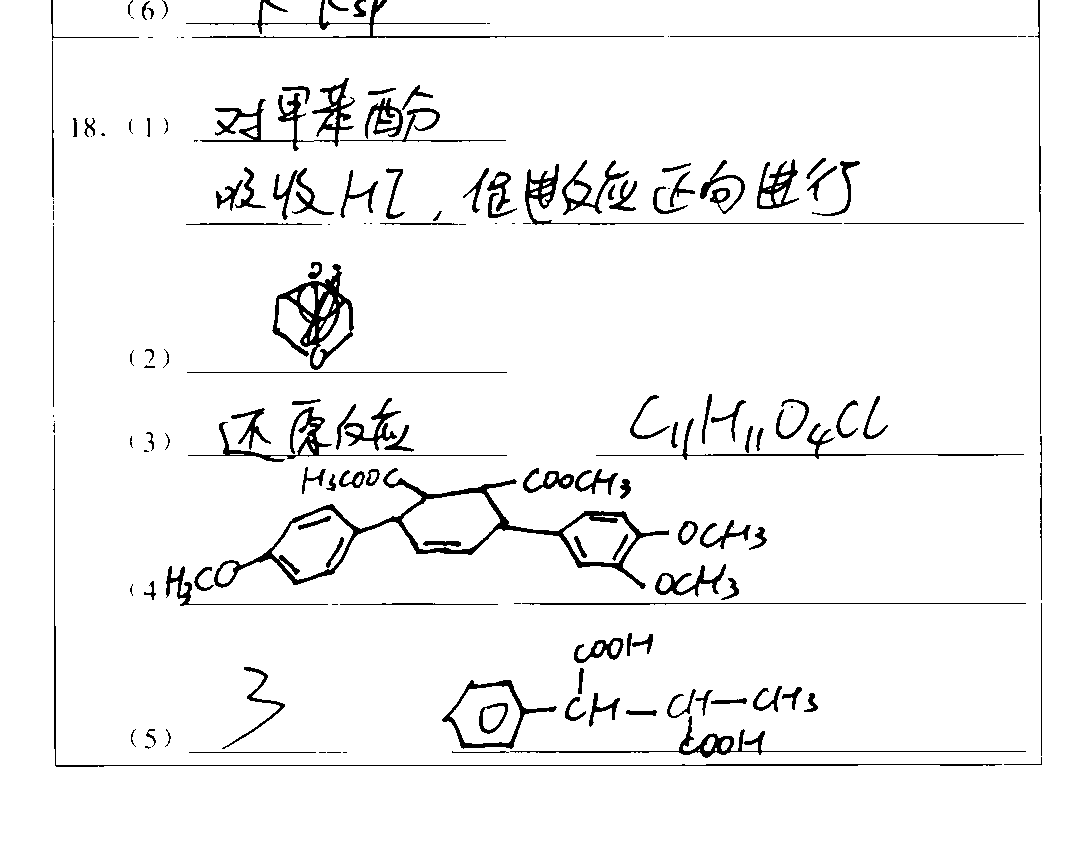 (6) K Ksp
18. (1) 对甲苯酚
吸收HI，促进反应正向进行
(2) O
(3) 还原反应 C₁₁H₁₁O₄Cl
H₃COOC COOCH₃
OCH₃
(4 H₃CO OCH₃
COOH
(5) 3 CH—CH—CH₃
COOH